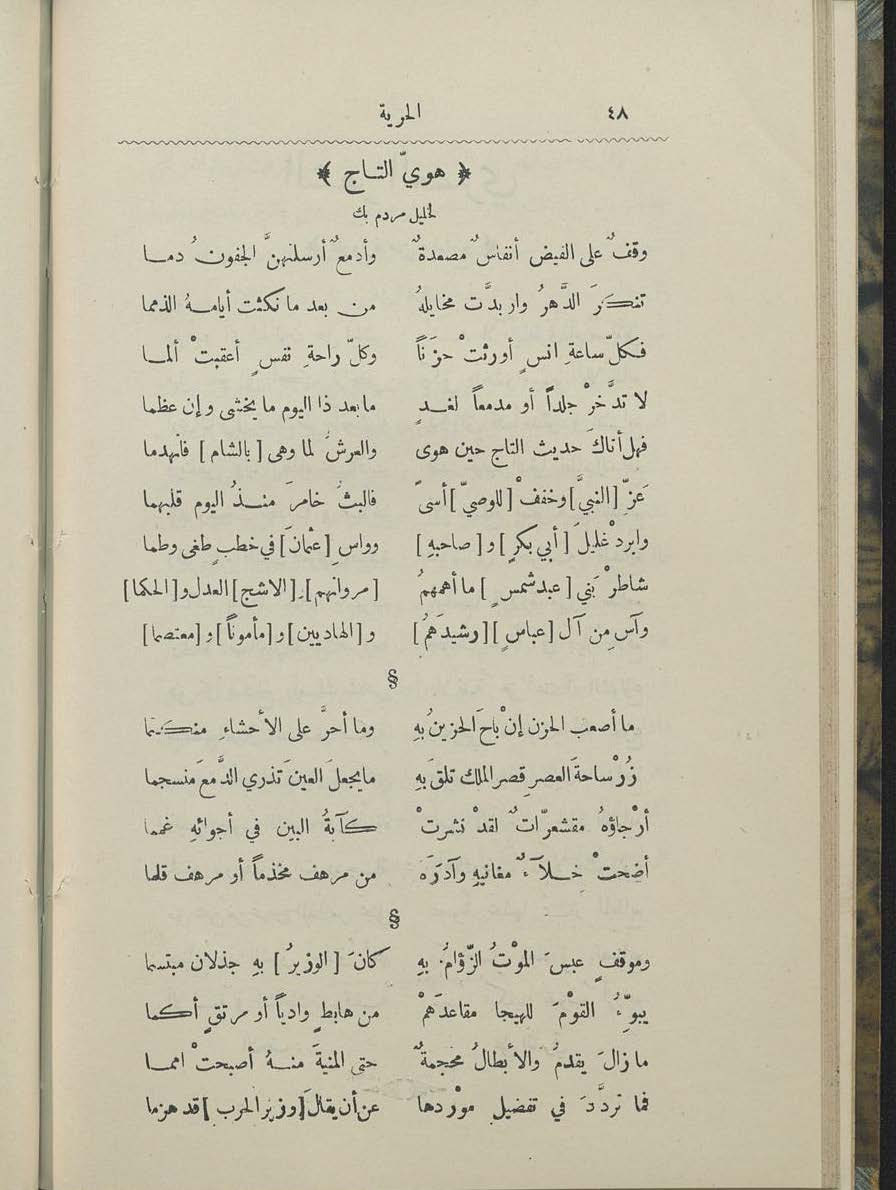 ٤٨ الحرية
﴿ هويّ التـاج ﴾
لخليل مردم بك
وقفٌ على الفيض أنفاسٌ مصعدةٌ وأدمعٌ أرسلتهنَّ الجفون ُ دمـا
تنكرَ الدَّهرُ واربدَّت مخايلهُ من بعد ما نكثت أيامـهُ الذمما
فكلّ ساعةِ انسٍ أورثتْ حزَناً وكلّ راحةِ نفسٍ أعقبتْ ألمـا
لا تدَّخرْ جلداً أو مدمعاً لغـدٍ ما بعد ذا اليوم ما يخشى وإن عظما
فهل أتاكَ حديث التاج حين هوى والعرشُ لما وهى [بالشام] فانهدما
عَزِّ [النبيَّ] وخففْ [للوصيّ] أسىً فالبثُّ خامرَ منـذُ اليوم قلبهما
وابردْ غليلَ [أبي بكرٍ] و[صاحبهِ] وواسِ [عثمانَ] في خطبٍ طغى وطما
شاطرْ بَني [عبد شمسٍ] ما أهمهمُ [مروانهم] [الاشج] العدل و[الحكما]
وآسِ من آل [عباسٍ] [رشيدَهمُ] و[الهاديين] و[مأموناً] و[معتصما]
§
ما أصعب الحزن إنْ باحَ الحزينُ بهِ وما أحرَّ على الأحشاءِ منكتما
زُرْ ساحةَ العصرِ قصر الملك تلقَ بهِ ما يجعلَ العينَ تذري الدَّمعَ منسجما
أرْجاؤهُ مقشعرّاتٌ لقدْ نثرتْ كآبةُ البين في أجوائهِ غمما
أضحتْ خـلآءٌ مغانيهِ وآدرَه من مرهف مخذماً أو مرهف قلما
§
وموقفٍ عبسَ الموْتُ الزّؤامُ بهِ كانَ [الوزيرُ] بهِ جذلان مبتسما
يبوِّءُ القوْمَ للهيجا مقاعدَهمْ من هابطٍ وادياً أو مرتقٍ أكما
ما زالَ يقدمُ والأبطالُ محجمةٌ حتى المنيةَ منـهُ أصبحتْ امما
فما تردَّدَ في تفضيل موْردها عن أن يقالَ [وزير الحرب] قد هزما